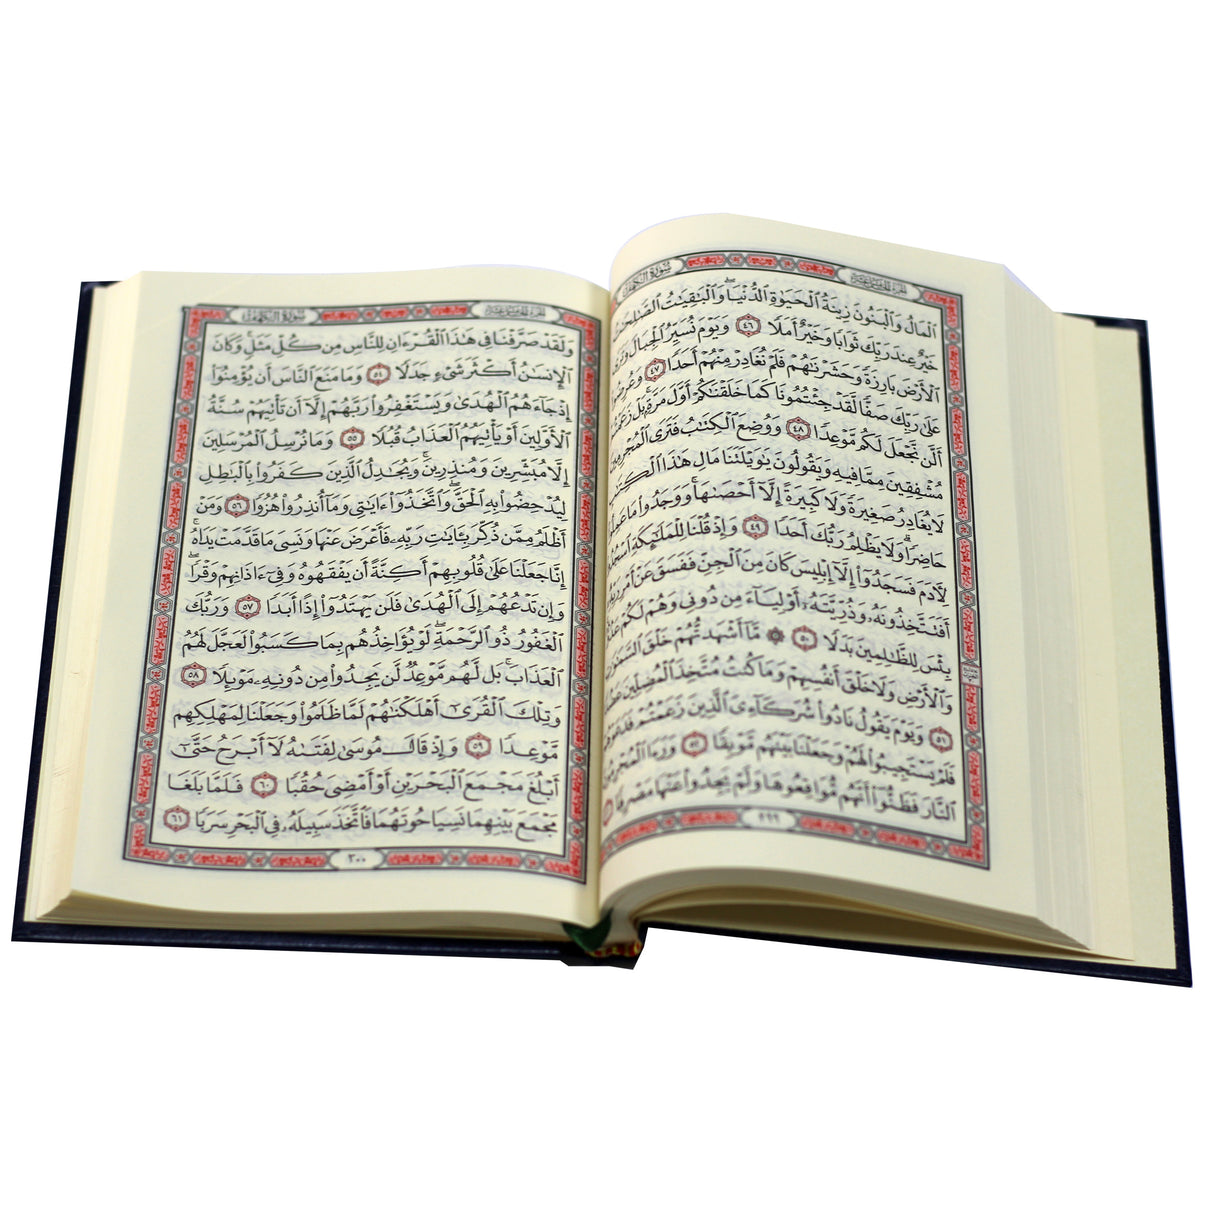 سُورَةُ الكَهْفِ
ٱلْمَالُ وَٱلْبَنُونَ زِينَةُ ٱلْحَيَوٰةِ ٱلدُّنْيَا ۖ وَٱلْبَٰقِيَٰتُ ٱلصَّٰلِحَٰتُ
خَيْرٌ عِندَ رَبِّكَ ثَوَابًا وَخَيْرٌ أَمَلًا ٤٦ وَيَوْمَ نُسَيِّرُ ٱلْجِبَالَ وَتَرَى
ٱلْأَرْضَ بَارِزَةً وَحَشَرْنَٰهُمْ فَلَمْ نُغَادِرْ مِنْهُمْ أَحَدًا ٤٧ وَعُرِضُوا۟
عَلَىٰ رَبِّكَ صَفًّا لَّقَدْ جِئْتُمُونَا كَمَا خَلَقْنَٰكُمْ أَوَّلَ مَرَّةٍۭ ۚ بَلْ زَعَمْتُمْ
أَلَّن نَّجْعَلَ لَكُم مَّوْعِدًا ٤٨ وَوُضِعَ ٱلْكِتَٰبُ فَتَرَى ٱلْمُجْرِمِينَ
مُشْفِقِينَ مِمَّا فِيهِ وَيَقُولُونَ يَٰوَيْلَتَنَا مَالِ هَٰذَا ٱلْكِتَٰبِ
لَا يُغَادِرُ صَغِيرَةً وَلَا كَبِيرَةً إِلَّآ أَحْصَىٰهَا ۚ وَوَجَدُوا۟ مَا عَمِلُوا۟
حَاضِرًا ۗ وَلَا يَظْلِمُ رَبُّكَ أَحَدًا ٤٩ وَإِذْ قُلْنَا لِلْمَلَٰٓئِكَةِ ٱسْجُدُوا۟
لِـَٔادَمَ فَسَجَدُوٓا۟ إِلَّآ إِبْلِيسَ كَانَ مِنَ ٱلْجِنِّ فَفَسَقَ عَنْ أَمْرِ رَبِّهِۦٓ ۗ
أَفَتَتَّخِذُونَهُۥ وَذُرِّيَّتَهُۥٓ أَوْلِيَآءَ مِن دُونِى وَهُمْ لَكُمْ عَدُوٌّۢ ۚ
بِئْسَ لِلظَّٰلِمِينَ بَدَلًا ٥٠ ۞ مَّآ أَشْهَدتُّهُمْ خَلْقَ ٱلسَّمَٰوَٰتِ
وَٱلْأَرْضِ وَلَا خَلْقَ أَنفُسِهِمْ وَمَا كُنتُ مُتَّخِذَ ٱلْمُضِلِّينَ عَضُدًا
٥١ وَيَوْمَ يَقُولُ نَادُوا۟ شُرَكَآءِىَ ٱلَّذِينَ زَعَمْتُمْ فَدَعَوْهُمْ
فَلَمْ يَسْتَجِيبُوا۟ لَهُمْ وَجَعَلْنَا بَيْنَهُم مَّوْبِقًا ٥٢ وَرَءَا ٱلْمُجْرِمُونَ
ٱلنَّارَ فَظَنُّوٓا۟ أَنَّهُم مُّوَاقِعُوهَا وَلَمْ يَجِدُوا۟ عَنْهَا مَصْرِفًا ٥٣
٢٩٩
سُورَةُ الكَهْفِ
وَلَقَدْ صَرَّفْنَا فِى هَٰذَا ٱلْقُرْءَانِ لِلنَّاسِ مِن كُلِّ مَثَلٍ ۚ وَكَانَ
ٱلْإِنسَٰنُ أَكْثَرَ شَىْءٍ جَدَلًا ٥٤ وَمَا مَنَعَ ٱلنَّاسَ أَن يُؤْمِنُوٓا۟
إِذْ جَآءَهُمُ ٱلْهُدَىٰ وَيَسْتَغْفِرُوا۟ رَبَّهُمْ إِلَّآ أَن تَأْتِيَهُمْ سُنَّةُ
ٱلْأَوَّلِينَ أَوْ يَأْتِيَهُمُ ٱلْعَذَابُ قُبُلًا ٥٥ وَمَا نُرْسِلُ ٱلْمُرْسَلِينَ
إِلَّا مُبَشِّرِينَ وَمُنذِرِينَ ۚ وَيُجَٰدِلُ ٱلَّذِينَ كَفَرُوا۟ بِٱلْبَٰطِلِ
لِيُدْحِضُوا۟ بِهِ ٱلْحَقَّ ۖ وَٱتَّخَذُوٓا۟ ءَايَٰتِى وَمَآ أُنذِرُوا۟ هُزُوًا ٥٦ وَمَنْ
أَظْلَمُ مِمَّن ذُكِّرَ بِـَٔايَٰتِ رَبِّهِۦ فَأَعْرَضَ عَنْهَا وَنَسِىَ مَا قَدَّمَتْ يَدَاهُ ۚ
إِنَّا جَعَلْنَا عَلَىٰ قُلُوبِهِمْ أَكِنَّةً أَن يَفْقَهُوهُ وَفِىٓ ءَاذَانِهِمْ وَقْرًا ۖ
وَإِن تَدْعُهُمْ إِلَى ٱلْهُدَىٰ فَلَن يَهْتَدُوٓا۟ إِذًا أَبَدًا ٥٧ وَرَبُّكَ
ٱلْغَفُورُ ذُو ٱلرَّحْمَةِ ۖ لَوْ يُؤَاخِذُهُم بِمَا كَسَبُوا۟ لَعَجَّلَ لَهُمُ
ٱلْعَذَابَ ۚ بَل لَّهُم مَّوْعِدٌ لَّن يَجِدُوا۟ مِن دُونِهِۦ مَوْئِلًا ٥٨
وَتِلْكَ ٱلْقُرَىٰٓ أَهْلَكْنَٰهُمْ لَمَّا ظَلَمُوا۟ وَجَعَلْنَا لِمَهْلِكِهِم
مَّوْعِدًا ٥٩ وَإِذْ قَالَ مُوسَىٰ لِفَتَىٰهُ لَآ أَبْرَحُ حَتَّىٰٓ
أَبْلُغَ مَجْمَعَ ٱلْبَحْرَيْنِ أَوْ أَمْضِىَ حُقُبًا ٦٠ فَلَمَّا بَلَغَا
مَجْمَعَ بَيْنِهِمَا نَسِيَا حُوتَهُمَا فَٱتَّخَذَ سَبِيلَهُۥ فِى ٱلْبَحْرِ سَرَبًا ٦١
٣٠٠